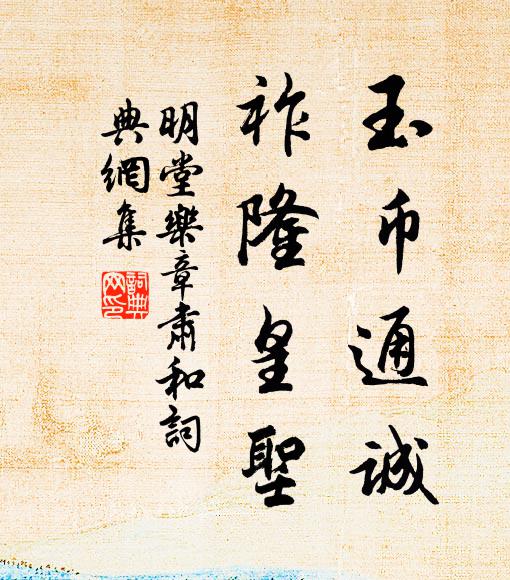 玉币通誠
祚隆皇聖
明堂樂章肅和詞
典網集
詞典
网印